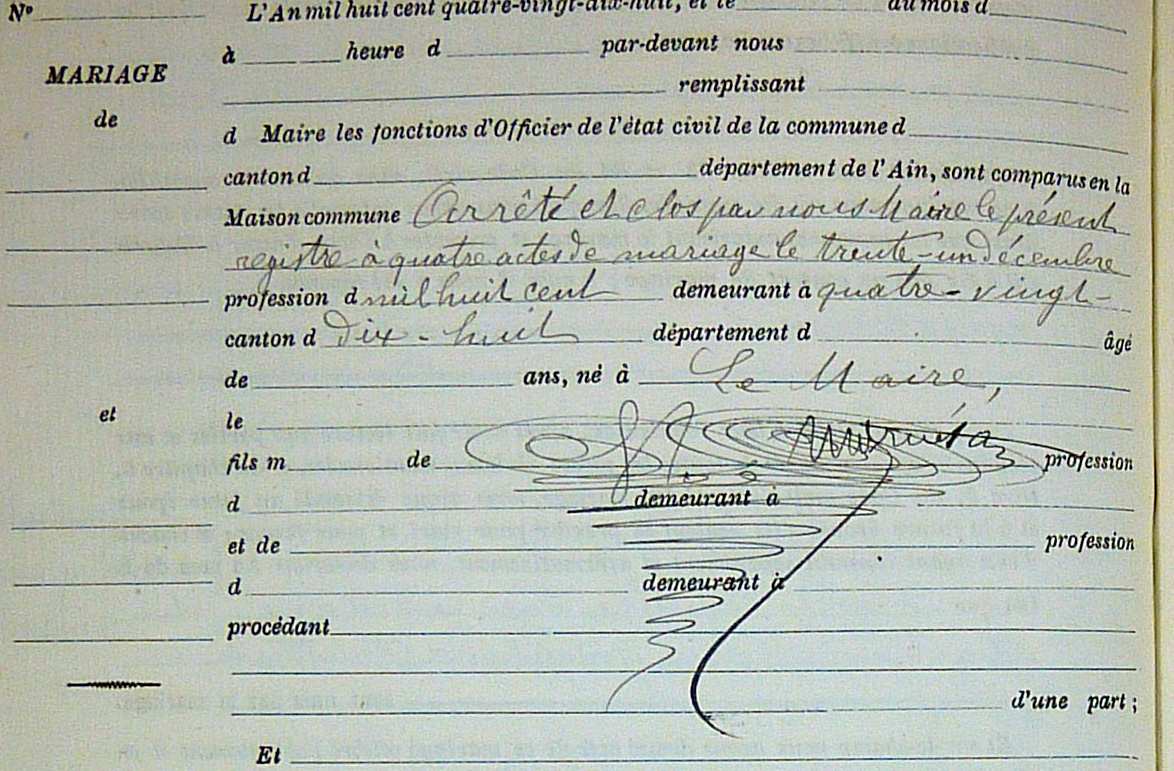 N° L'An mil huit cent quatre-vingt-dix-huit, et le du mois d
à heure d par-devant nous
MARIAGE
remplissant
de
d Maire les fonctions d'Officier de l'état civil de la commune d
canton d département de l'Ain, sont comparus en la
Maison commune Arrêté et clos par nous Maire le présent
registre à quatre actes de mariage le trente-un décembre
profession d mil huit cent demeurant à quatre-vingt-
canton d dix-huit département d âgé
de ans, né à Le Maire,
et
le
fils m de profession
d demeurant à
et de profession
d demeurant à
procédant
d'une part;
Et